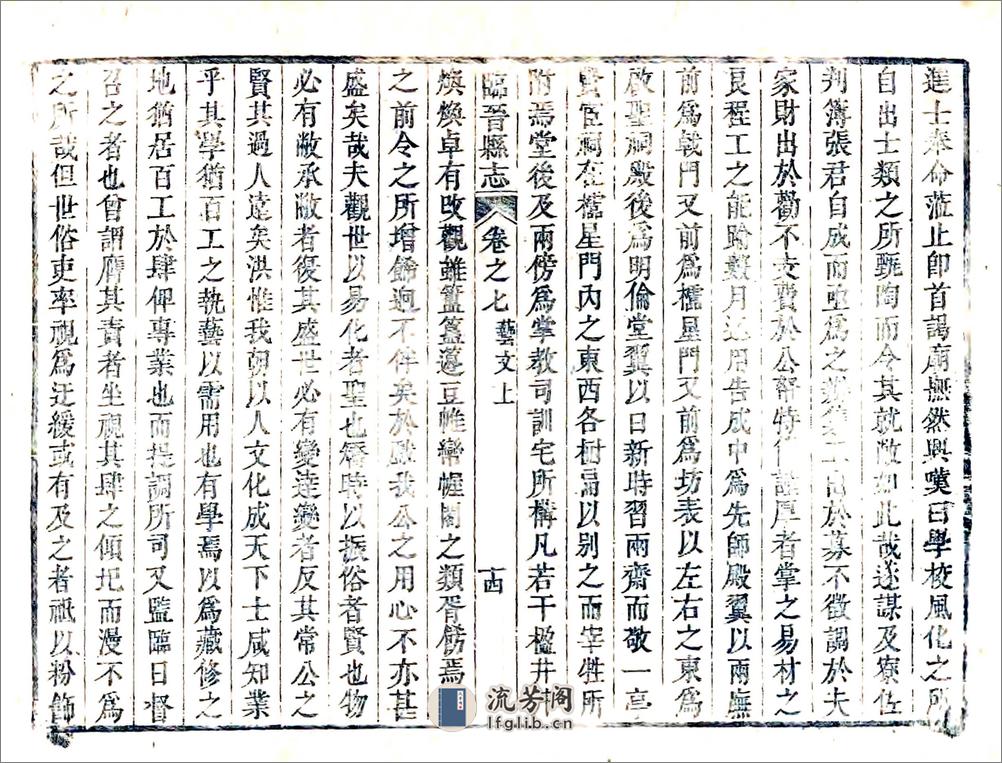 進士奉命蒞止即首謁廟憮然興嘆曰學校風化之所
自出士類之所甄陶而令其就敝如此哉遂謀及寮佐
判簿張君自成而亟為之 出於募不徵調於夫
家財出於勸不 費於公帑特 謹厚者掌之易材之
良程工之能踰數月迄用告成中為先師殿翼以兩廡
前為戟門又前為櫺星門又前為坊表以左右之東為
啟聖祠殿後為明倫堂翼以日新時習兩齋而敬一亭
賢宦祠在櫺星門內之東西各樹扁以別之而宰牲所
附焉堂後及兩傍為掌教司訓宅所構凡若干楹井井
臨晉縣志 卷之七 藝文上 十四
煥煥卓有改觀雖簠簋籩豆帷幄 之類胥飭焉
之前令之所增餙逈不侔矣於戲我公之用心不亦甚
盛矣哉夫觀世以易化者聖也 時以振俗者賢也物
必有敝承敝者復其盛世必有變達變者反其常公之
賢其過人遠矣洪惟我朝以人文化成天下士咸知業
乎其學猶百工之執藝以需用也有學焉以為藏修之
地猶居百工於肆俾專業也而提調所司又監臨日督
召之者也曾謂膺其責者坐視其肆之傾圯而漫不為
之所哉但世俗吏率視為迂緩或有及之者祗以粉飾
流芳閣
lfglib.cn